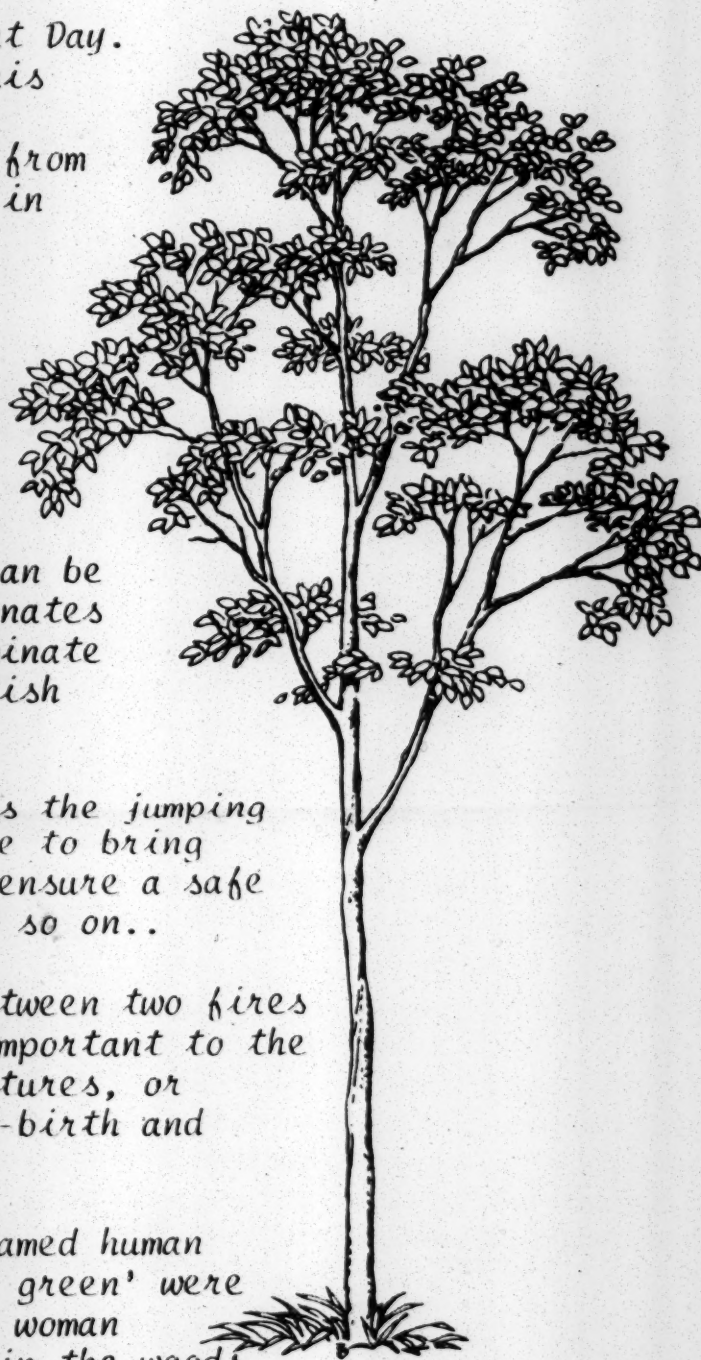 t Day.
is
from
in
an be
nates
inate
ish
s the jumping
e to bring
ensure a safe
so on..
tween two fires
mportant to the
tures, or
-birth and
amed human
green' were
woman
in the woods